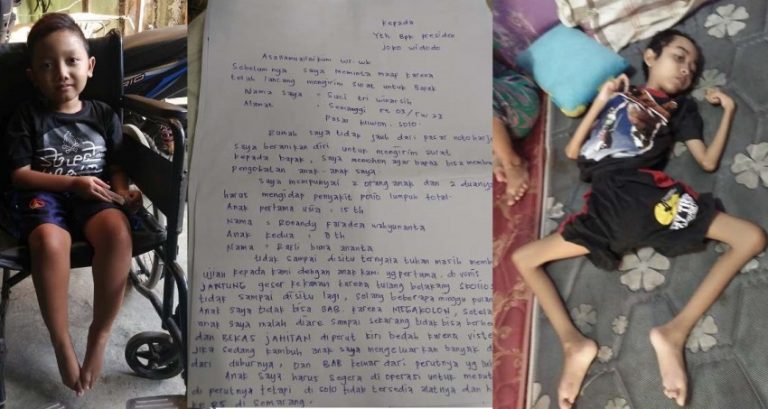 Kepada
Yth Bpk presiden
Joko widodo
Assallamuallaikum wr. wb
Sebelumnya saya meminta maaf karena
telah lancang mengirim surat untuk Bapak
Nama saya : Suci tri winarsih
Alamat : Semanggi rt 03/rw 23
Pasar kliwon. solo
Rumah saya tidak jauh dari pasar
saya beranikan diri untuk mengirim surat
kepada bapak, saya memohon agar bapak bisa
pengobatan anak-anak saya
saya mempunyai 2 orang anak dan 2 duanya
harus mengidap penyakit polio lumpuh total.
Anak pertama usia : 15 th
Nama : wahyunanta
Anak kedua : 8 th
Nama : Rafli bima ananta
tidak sampai disitu ternyata tuhan masih
ujian kepada kami dengan anak kami yg pertama. di vonis
JANTUNG geser kekanan karena tulang belakang
tidak sampai disitu lagi, selang beberapa minggu
Anak saya tidak bisa BAB. karena MEGAKOLON,
anak saya malah diare sampai sekarang tidak bisa
dan BEKAS JAHITAN diperut kiri bedah karena
jika sedang kambuh anak saya mengeluarkan banyak
dari dan BAB keluar dari perutnya yg
Anak saya harus segera di operasi untuk
di perutnya tetapi di solo tidak tersedia alatnya dan
ke RS di Semarang.